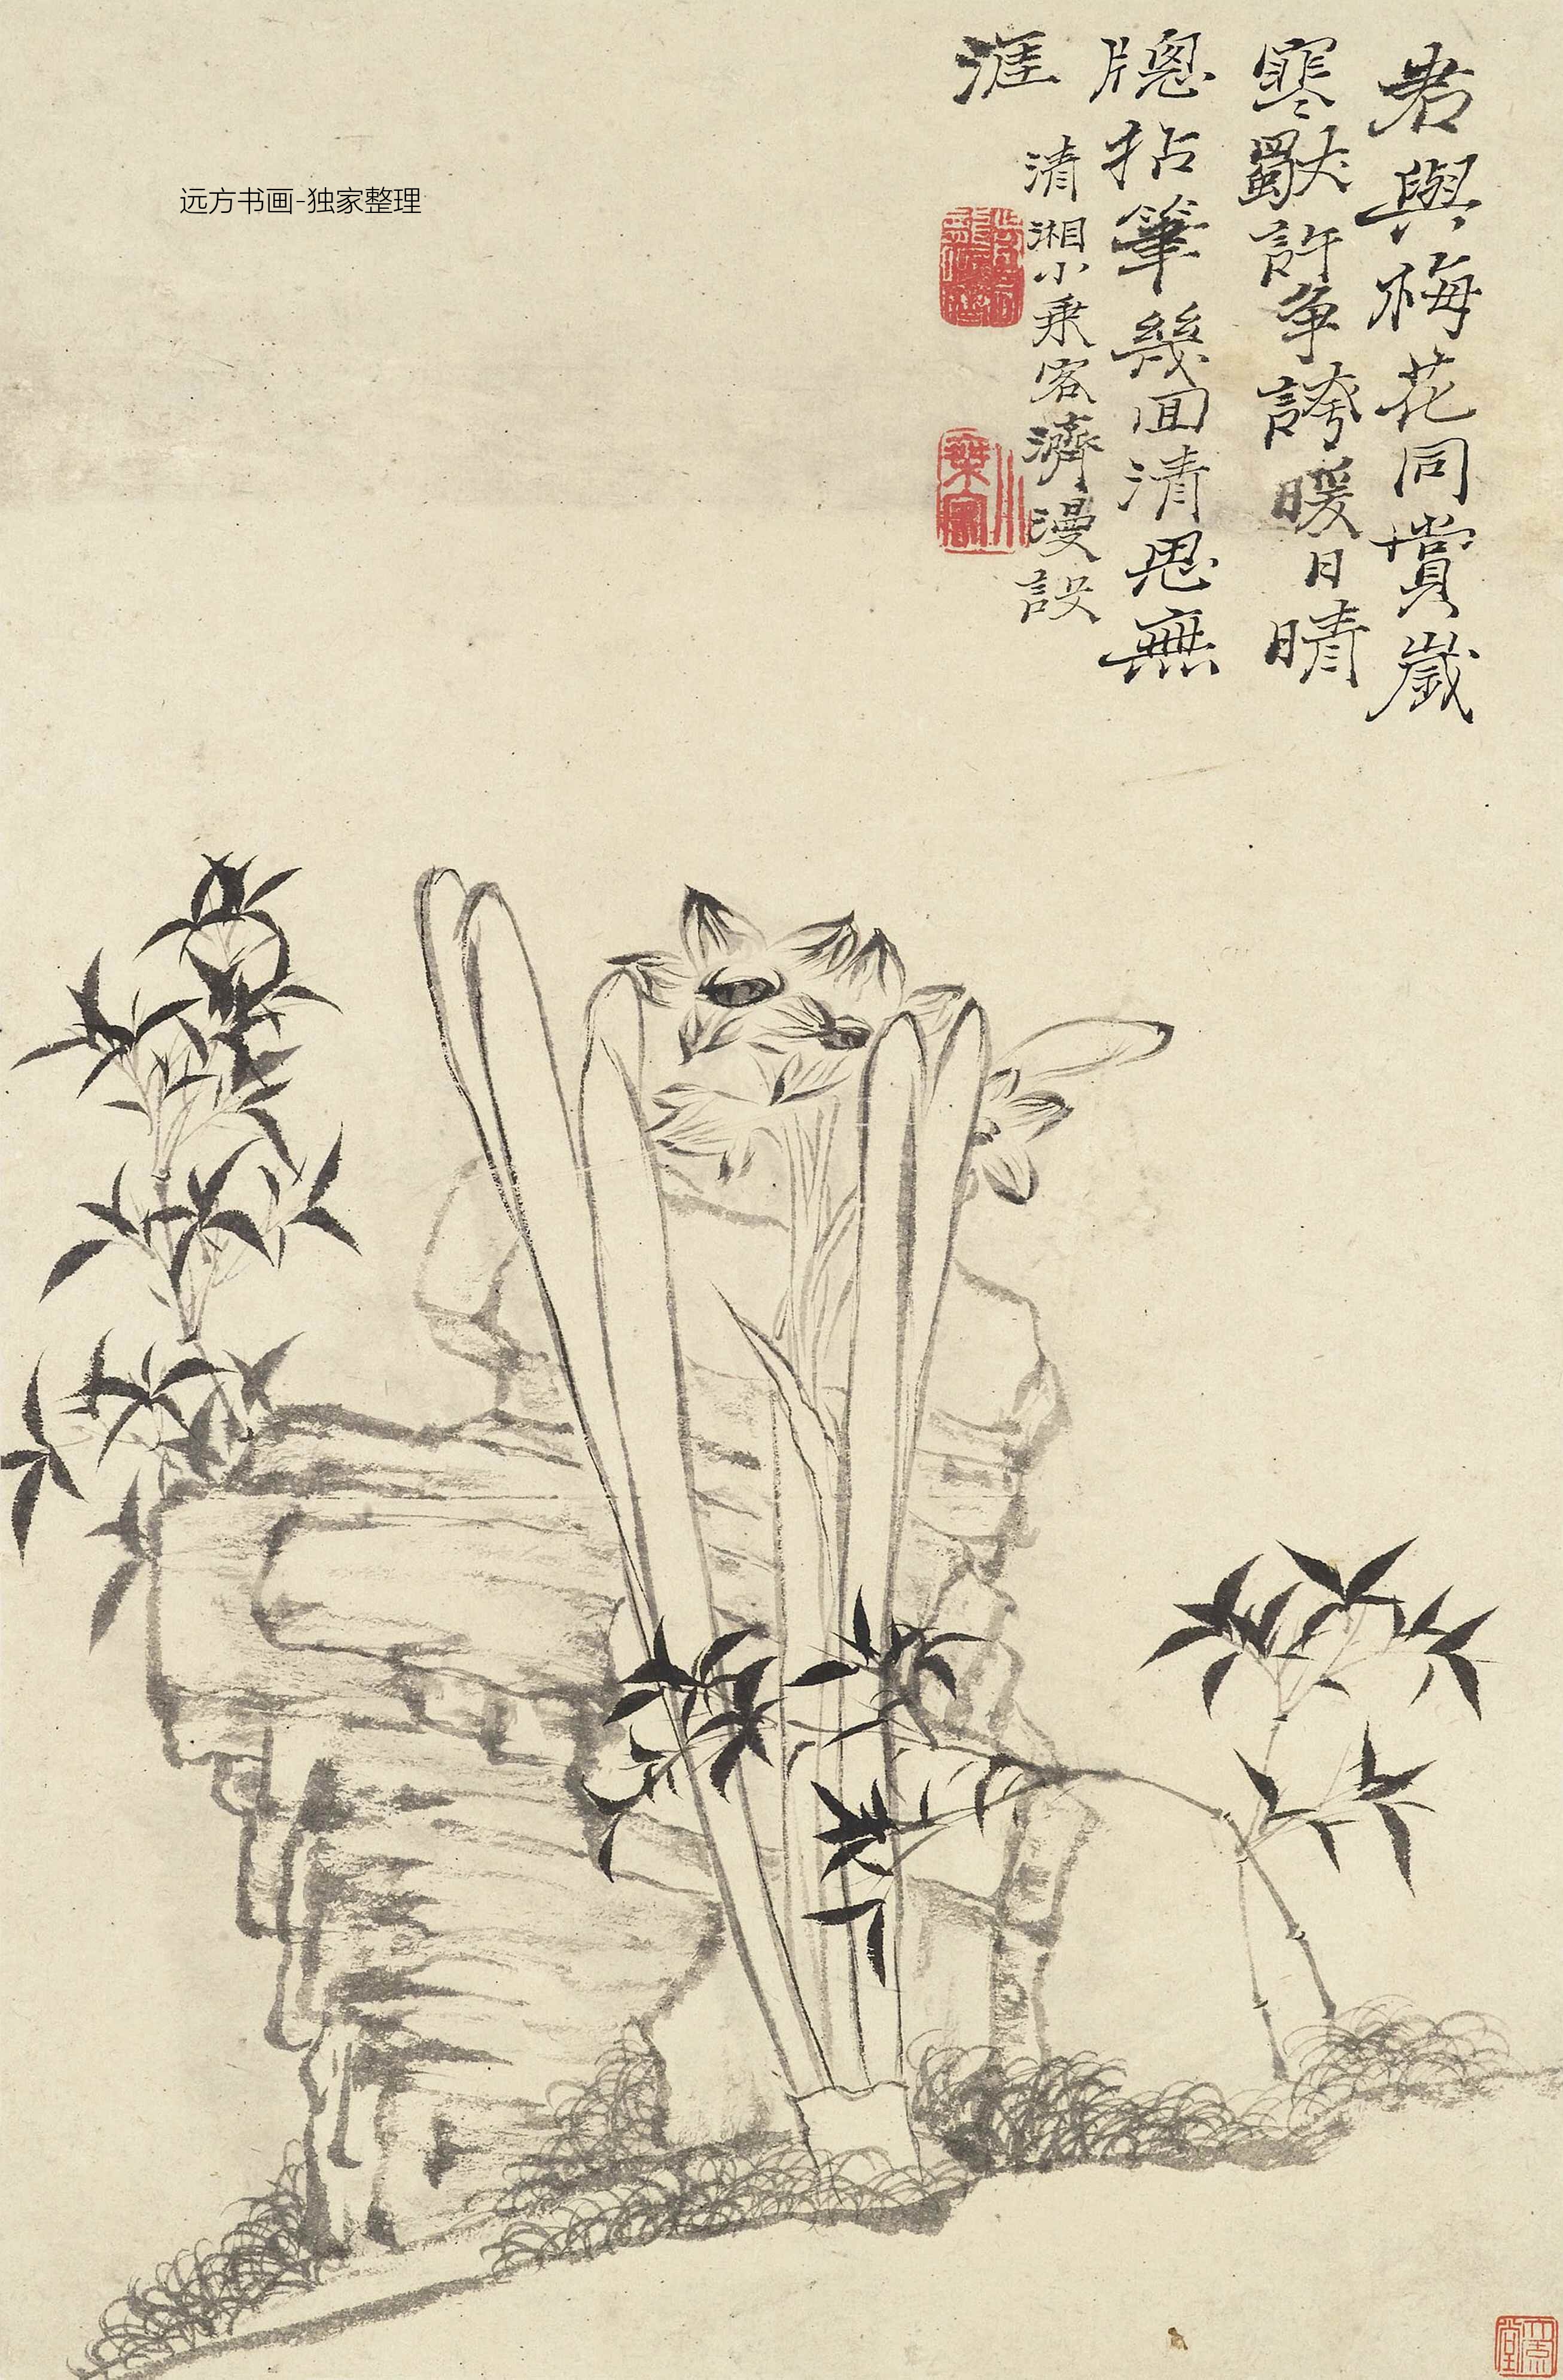 君與梅花同賞歲
寒獸許争誇暖日晴
牕拈筆幾回清思無
涯
清湘小乗客濟漫設
远方书画-独家整理